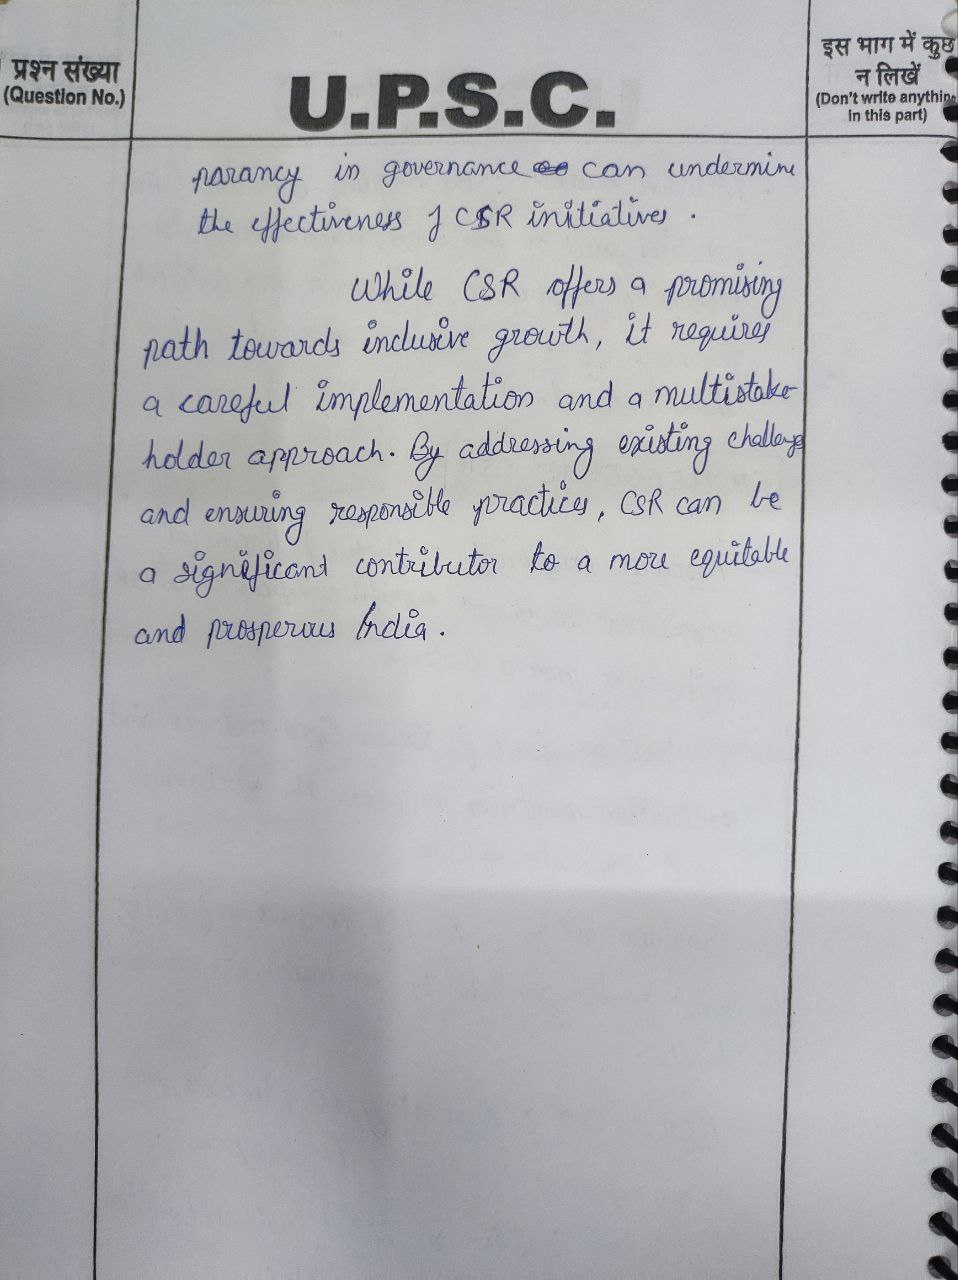 प्रश्न संख्या
(Question No.)
U.P.S.C.
इस भाग में कुछ
न लिखें
(Don't write anything
in this part)
parancy in governance can undermine
the effectiveness of CSR initiatives.
While CSR offers a promising
path towards inclusive growth, it requires
a careful implementation and a multistake-
holder approach. By addressing existing challenges
and ensuring responsible practices, CSR can be
a significant contributor to a more equitable
and prosperous India.